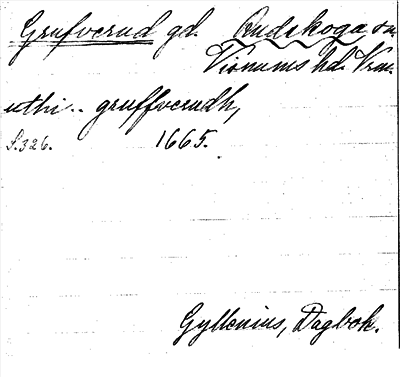 Grufverud gd. Rudskoga sn.
Visnums hd. Vrml.
uthi .. gruffverudh,
S. 326. 1665.
Gyllenius, Dagbok.